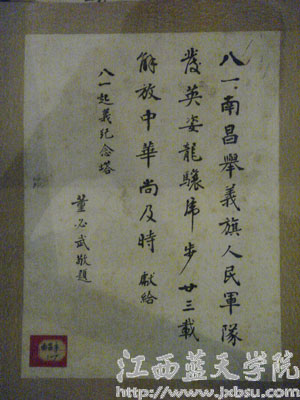 八一南昌舉義旗人民軍隊
發英姿龍驤虎步廿三載
解放中華尚及時 獻給
八一起義纪念塔
董必武敬題
江西蓝天学院
http://www.jxbsu.com